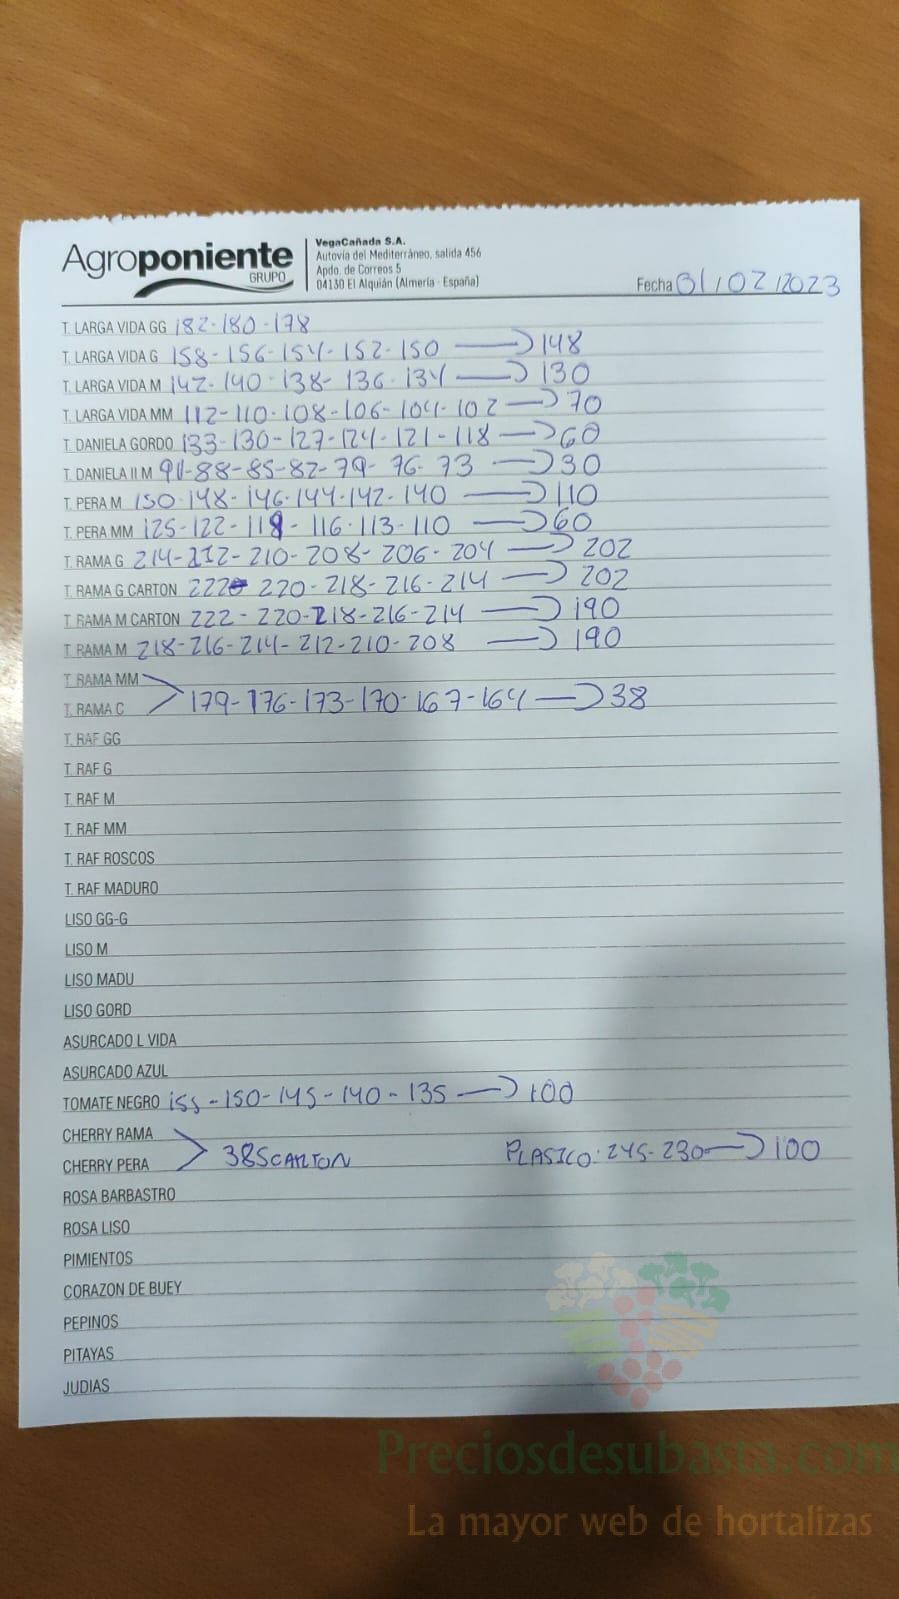 Agroponiente
GRUPO
VegaCañada S.A.
Autovía del Mediterráneo, salida 456
Apdo. de Correos 5
04130 El Alquián (Almería - España)
Fecha 01/02/2023
T. LARGA VIDA GG 182-180-178
T. LARGA VIDA G 158-156-154-152-150 → 148
T. LARGA VIDA M 142-140-138-136-134 → 130
T. LARGA VIDA MM 112-110-108-106-104-102 → 70
T. DANIELA GORDO 133-130-127-124-121-118 → 60
T. DANIELA II M 91-88-85-82-79-76-73 → 30
T. PERA M 150-148-146-144-142-140 → 110
T. PERA MM 125-122-119-116-113-110 → 60
T. RAMA G 214-212-210-208-206-204 → 202
T. RAMA G CARTON 222 220-218-216-214 → 202
T. RAMA M CARTON 222-220-218-216-214 → 190
T. RAMA M 218-216-214-212-210-208 → 190
T. RAMA MM
T. RAMA C 179-176-173-170-167-164 → 38
T. RAF GG
T. RAF G
T. RAF M
T. RAF MM
T. RAF ROSCOS
T. RAF MADURO
LISO GG-G
LISO M
LISO MADU
LISO GORD
ASURCADO L VIDA
ASURCADO AZUL
TOMATE NEGRO 155-150-145-140-135 → 100
CHERRY RAMA
CHERRY PERA 385 CARTON PLASICO: 245-230 → 100
ROSA BARBASTRO
ROSA LISO
PIMIENTOS
CORAZON DE BUEY
PEPINOS
PITAYAS
JUDIAS
Preciosdesubasta.com
La mayor web de hortalizas